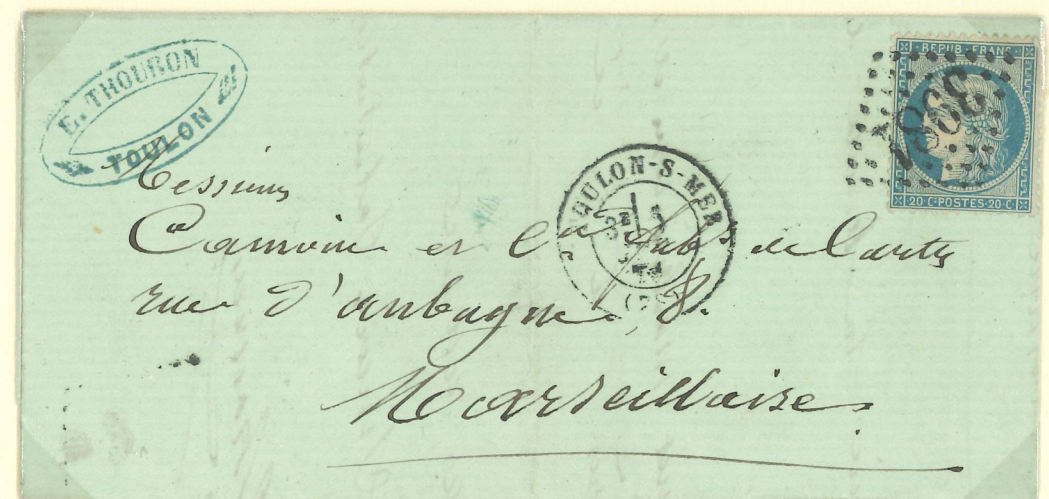 E. THOURON
TOULON
REPUB. FRANC.
3981
20 C. POSTES 20 C.
TOULON-S-MER
Messieurs
Camoin et Cie Fabts de Cartes
rue d'aubagne 8.
Marseillaise